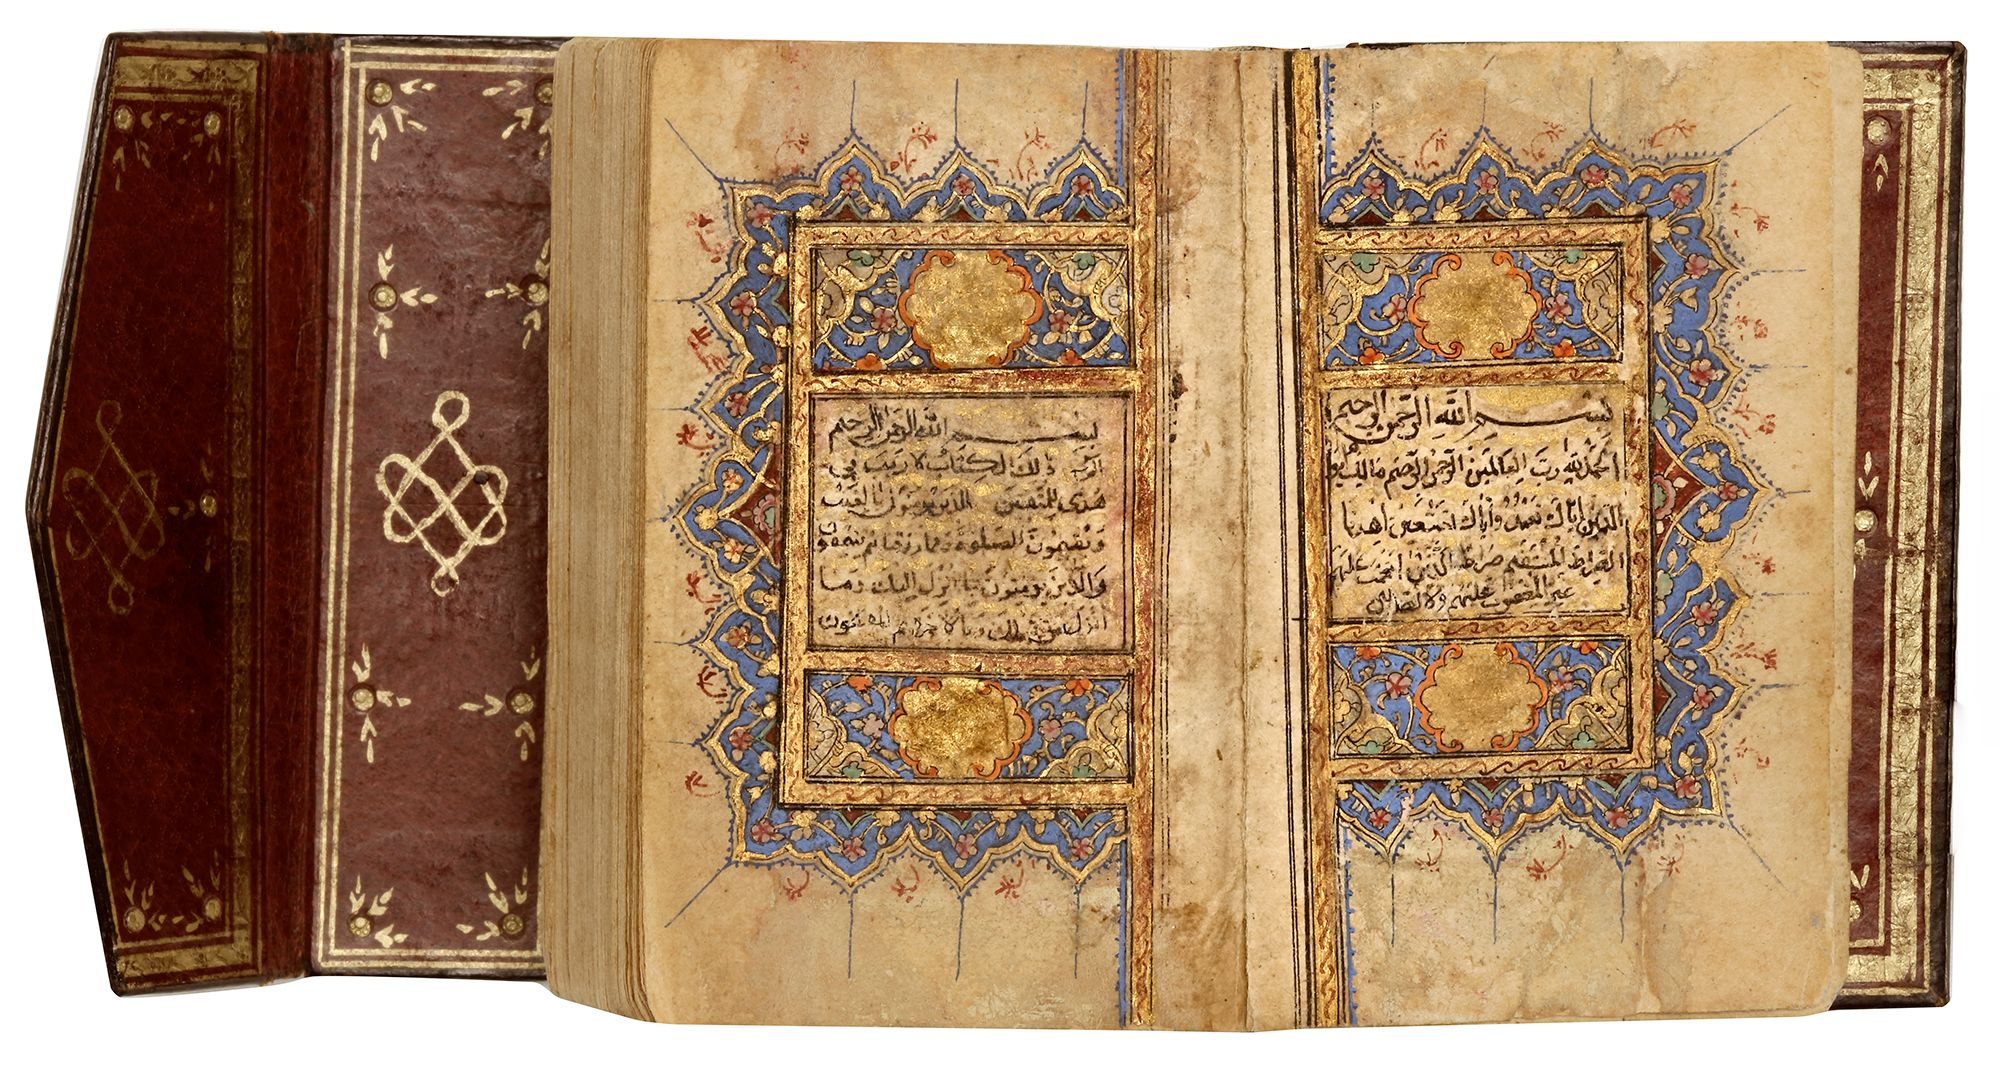 بسم الله الرحمن الرحيم
الحمد لله رب العالمين الرحمن الرحيم مالك يوم
الدين اياك نعبد واياك نستعين اهدنا
الصراط المستقيم صراط الذين انعمت عليهم
غير المغضوب عليهم ولا الضالين
بسم الله الرحمن الرحيم
الم ذلك الكتاب لا ريب فيه
هدى للمتقين الذين يؤمنون بالغيب
ويقيمون الصلوة ومما رزقناهم ينفقون
والذين يؤمنون بما انزل اليك وما
انزل من قبلك وبالاخرة هم يوقنون